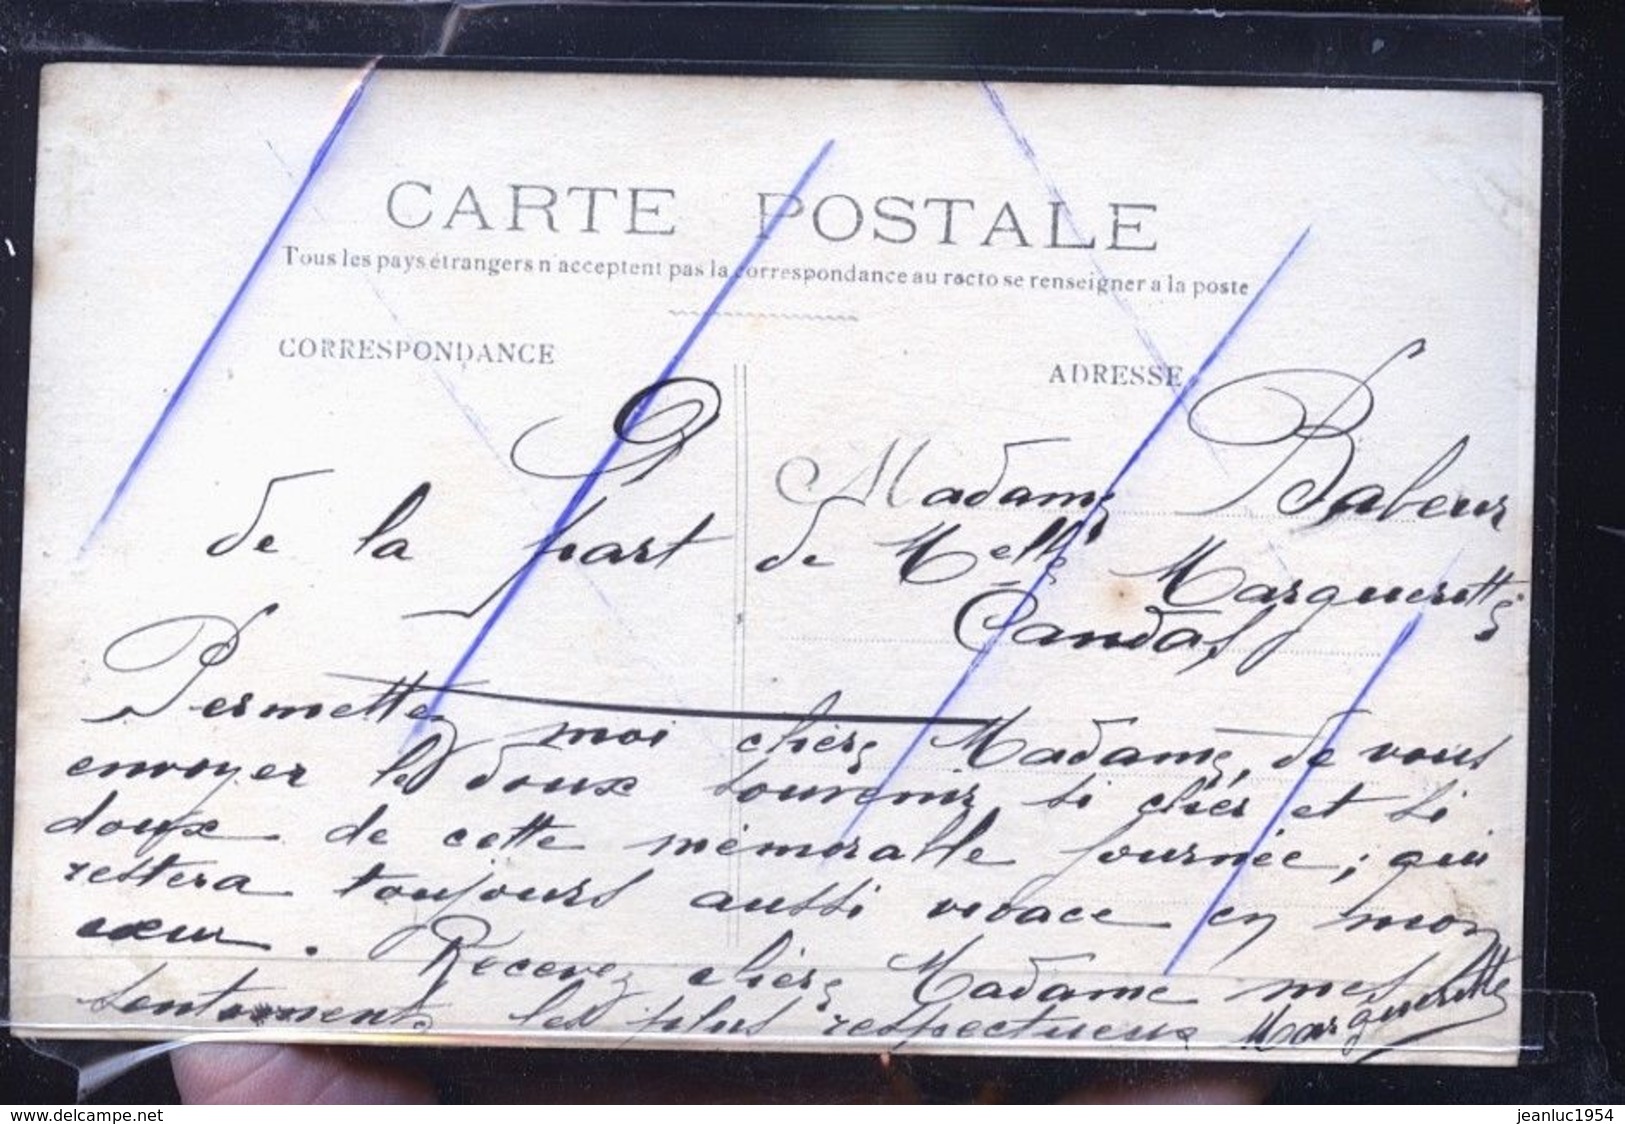 CARTE POSTALE
Tous les pays étrangers n'acceptent pas la correspondance au recto se renseigner a la poste
CORRESPONDANCE
ADRESSE
A Madame Babeur
de la part de Melle Marguerite
Candas
Permettez moi chère Madame, de vous
envoyer le doux souvenir si cher et si
doux de cette mémorable journée; qui
restera toujours aussi vivace en mon
cœur. Recevez chère Madame mes
sentiments les plus respectueux Marguerite
www.delcampe.net
jeanluc1954